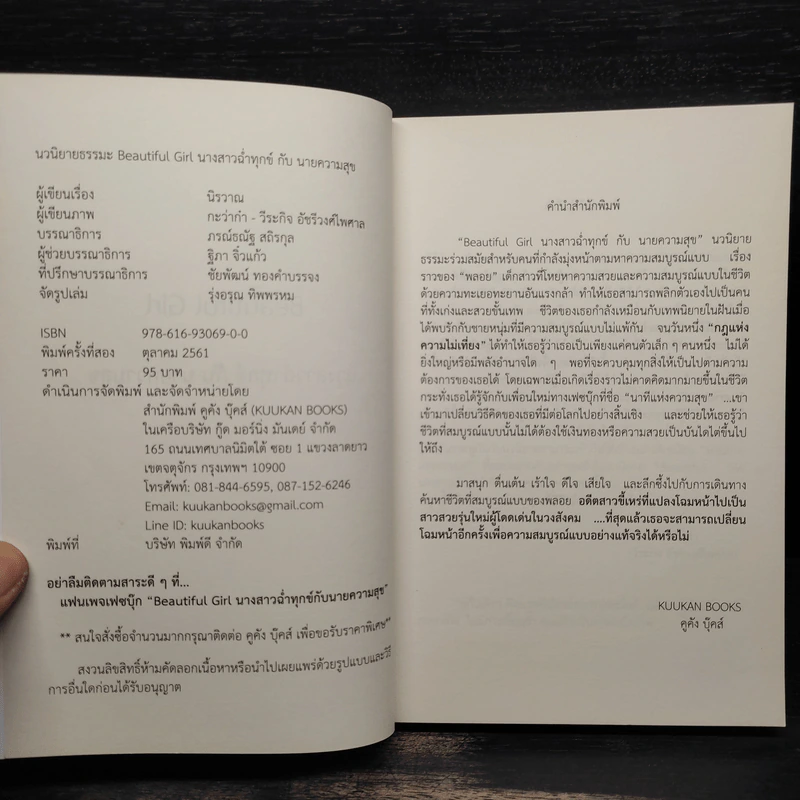 นวนิยายธรรมะ Beautiful Girl นางสาวฉ่ำทุกข์ กับ นายความสุข
ผู้เขียนเรื่อง นิรวาณ
ผู้เขียนภาพ กะว่าก๋า - วีระกิจ อัชรีวงศ์ไพศาล
บรรณาธิการ ภรณ์ธณัฐ สถิรกุล
ผู้ช่วยบรรณาธิการ ฐิภา จิ๋วแก้ว
ที่ปรึกษาบรรณาธิการ ชัยพัฒน์ ทองคำบรรจง
จัดรูปเล่ม รุ่งอรุณ ทิพพรหม
ISBN 978-616-93069-0-0
พิมพ์ครั้งที่สอง ตุลาคม 2561
ราคา 95 บาท
ดำเนินการจัดพิมพ์ และจัดจำหน่ายโดย
สำนักพิมพ์ คูคัง บุ๊คส์ (KUUKAN BOOKS)
ในเครือบริษัท กู๊ด มอร์นิ่ง มันเดย์ จำกัด
165 ถนนเทศบาลนิมิตใต้ ซอย 1 แขวงลาดยาว
เขตจตุจักร กรุงเทพฯ 10900
โทรศัพท์: 081-844-6595, 087-152-6246
Email: kuukanbooks@gmail.com
Line ID: kuukanbooks
พิมพ์ที่ บริษัท พิมพ์ดี จำกัด
อย่าลืมติดตามสาระดี ๆ ที่...
แฟนเพจเฟซบุ๊ก “Beautiful Girl นางสาวฉ่ำทุกข์กับนายความสุข”
** สนใจสั่งซื้อจำนวนมากกรุณาติดต่อ คูคัง บุ๊คส์ เพื่อขอรับราคาพิเศษ**
สงวนลิขสิทธิ์ห้ามคัดลอกเนื้อหาหรือนำไปเผยแพร่ด้วยรูปแบบและวิธี
การอื่นใดก่อนได้รับอนุญาต
คำนำสำนักพิมพ์
“Beautiful Girl นางสาวฉ่ำทุกข์ กับ นายความสุข” นวนิยาย
ธรรมะร่วมสมัยสำหรับคนที่กำลังมุ่งหน้าตามหาความสมบูรณ์แบบ เรื่อง
ราวของ “พลอย” เด็กสาวที่โหยหาความสวยและความสมบูรณ์แบบในชีวิต
ด้วยความทะเยอทะยานอันแรงกล้า ทำให้เธอสามารถพลิกตัวเองไปเป็นคน
ที่ทั้งเก่งและสวยขั้นเทพ ชีวิตของเธอกำลังเหมือนกับเทพนิยายในฝันเมื่อ
ได้พบรักกับชายหนุ่มที่มีความสมบูรณ์แบบไม่แพ้กัน จนวันหนึ่ง “กฎแห่ง
ความไม่เที่ยง” ได้ทำให้เธอรู้ว่าเธอเป็นเพียงแค่คนตัวเล็ก ๆ คนหนึ่ง ไม่ได้
ยิ่งใหญ่หรือมีพลังอำนาจใด ๆ พอที่จะควบคุมทุกสิ่งให้เป็นไปตามความ
ต้องการของเธอได้ โดยเฉพาะเมื่อเกิดเรื่องราวไม่คาดคิดมากมายขึ้นในชีวิต
กระทั่งเธอได้รู้จักกับเพื่อนใหม่ทางเฟซบุ๊กที่ชื่อ “นาทีแห่งความสุข” ...เขา
เข้ามาเปลี่ยนวิธีคิดของเธอที่มีต่อโลกไปอย่างสิ้นเชิง และช่วยให้เธอรู้ว่า
ชีวิตที่สมบูรณ์แบบนั้นไม่ได้ต้องใช้เงินทองหรือความสวยเป็นบันไดไต่ขึ้นไป
ให้ถึง
มาสนุก ตื่นเต้น เร้าใจ ดีใจ เสียใจ และลึกซึ้งไปกับการเดินทาง
ค้นหาชีวิตที่สมบูรณ์แบบของพลอย อดีตสาวขี้เหร่ที่แปลงโฉมหน้าไปเป็น
สาวสวยรุ่นใหม่ผู้โดดเด่นในวงสังคม ....ที่สุดแล้วเธอจะสามารถเปลี่ยน
โฉมหน้าอีกครั้งเพื่อความสมบูรณ์แบบอย่างแท้จริงได้หรือไม่
KUUKAN BOOKS
คูคัง บุ๊คส์